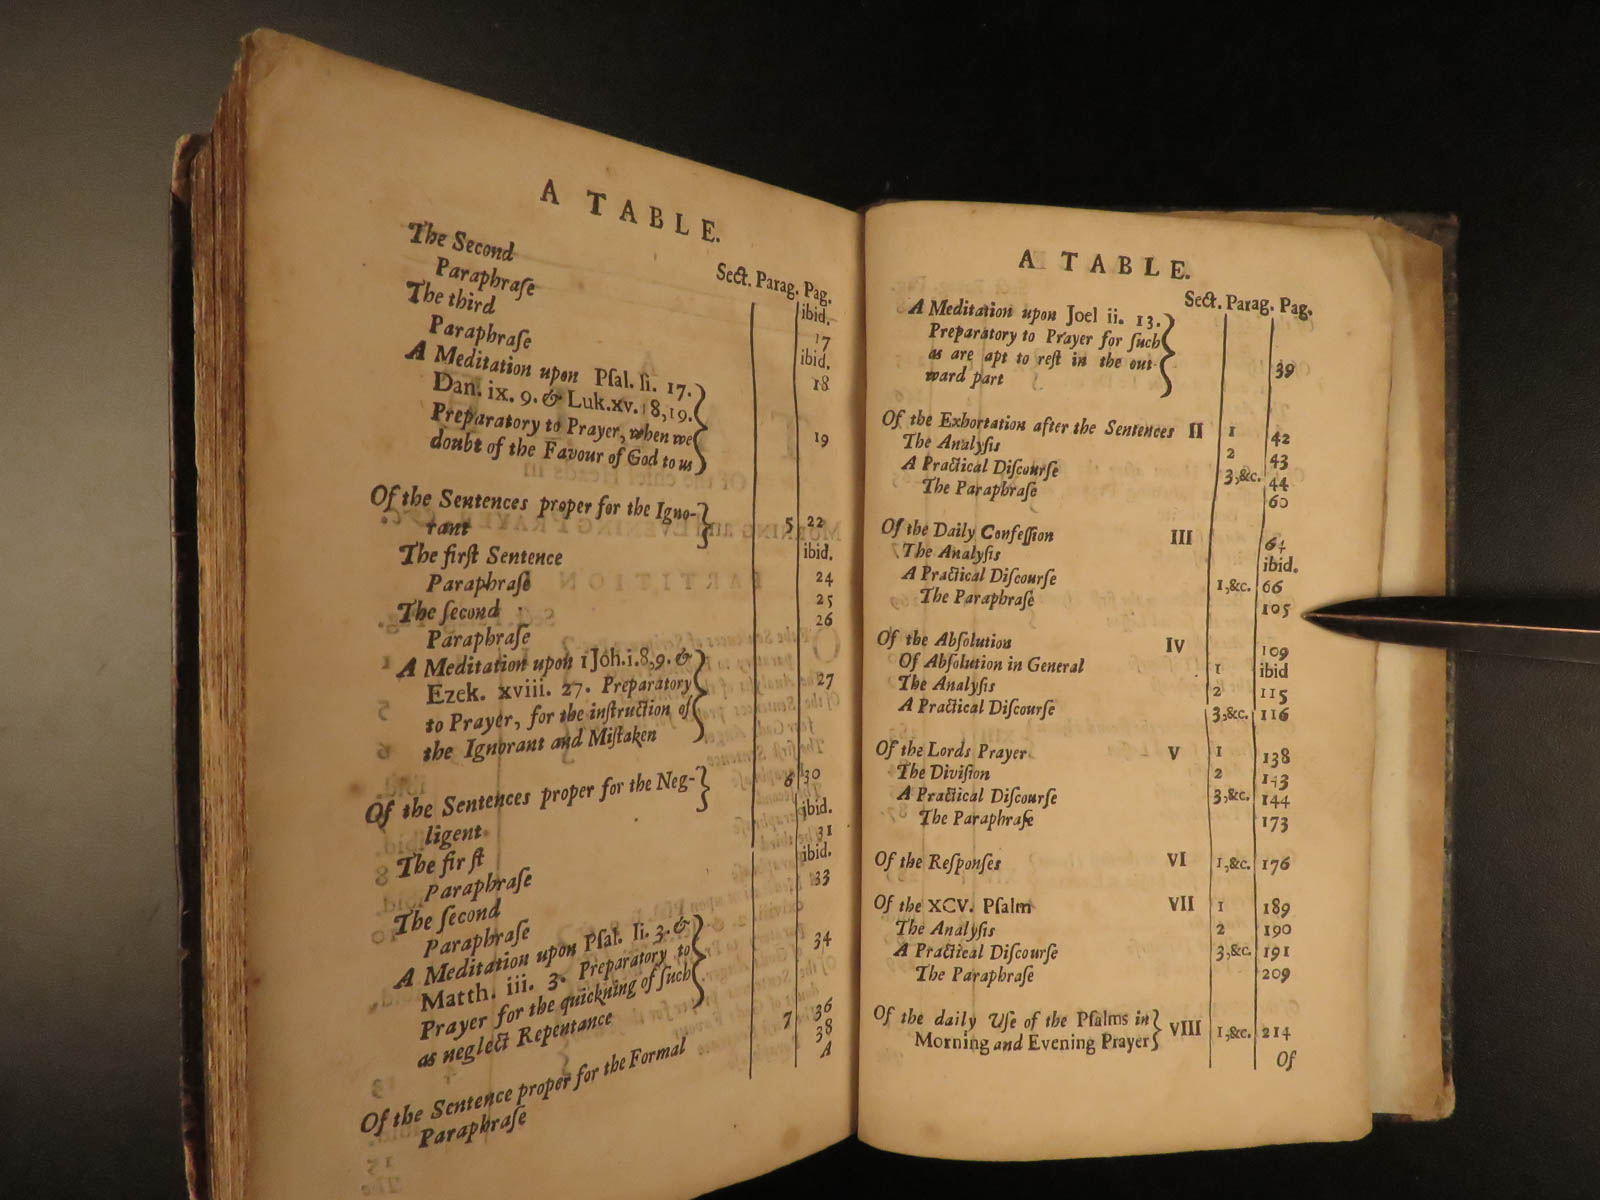 A TABLE.
Sect. Parag. Pag.
The Second ibid.
Paraphraſe 17
The third ibid.
Paraphraſe 18
A Meditation upon Pſal. li. 17.
Dan. ix. 9. & Luk. xv. 18, 19.
Preparatory to Prayer, when we 19
doubt of the Favour of God to us
Of the Sentences proper for the Igno- 5 22
rant
The firſt Sentence ibid.
Paraphraſe 24
The ſecond 25
Paraphraſe 26
A Meditation upon 1 Joh. i. 8, 9. &
Ezek. xviii. 27. Preparatory 27
to Prayer, for the inſtruction of
the Ignorant and Miſtaken
Of the Sentences proper for the Neg- 6 30
ligent
The firſt ibid.
Paraphraſe 31
The ſecond ibid.
Paraphraſe 33
A Meditation upon Pſal. li. 3. &
Matth. iii. 3. Preparatory to 34
Prayer for the quickning of ſuch
as neglect Repentance
Of the Sentence proper for the Formal 7 36
Paraphraſe 38
A
A TABLE.
Sect. Parag. Pag.
A Meditation upon Joel ii. 13.
Preparatory to Prayer for ſuch
as are apt to reſt in the out- 39
ward part
Of the Exhortation after the Sentences II 1 42
The Analyſis 2 43
A Practical Diſcourſe 3, &c. 44
The Paraphraſe 60
Of the Daily Confeſſion III 64
The Analyſis ibid.
A Practical Diſcourſe 1, &c. 66
The Paraphraſe 105
Of the Abſolution IV 109
Of Abſolution in General 1 ibid
The Analyſis 2 115
A Practical Diſcourſe 3, &c. 116
Of the Lords Prayer V 1 138
The Diviſion 2 143
A Practical Diſcourſe 3, &c. 144
The Paraphraſe 173
Of the Reſponſes VI 1, &c. 176
Of the XCV. Pſalm VII 1 189
The Analyſis 2 190
A Practical Diſcourſe 3, &c. 191
The Paraphraſe 209
Of the daily Uſe of the Pſalms in
Morning and Evening Prayer VIII 1, &c. 214
Of